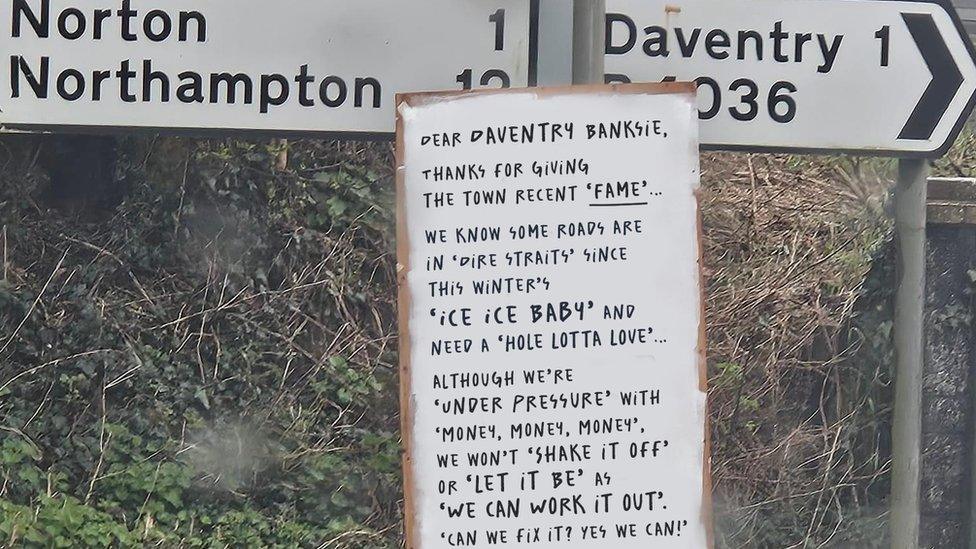 Norton 1
Northampton
Daventry 1
DEAR DAVENTRY BANKSIE,
THANKS FOR GIVING
THE TOWN RECENT 'FAME'...
WE KNOW SOME ROADS ARE
IN 'DIRE STRAITS' SINCE
THIS WINTER'S
'iCE iCE BABY' AND
NEED A 'HOLE LOTTA LOVE'...
ALTHOUGH WE'RE
'UNDER PRESSURE' WITH
'MONEY, MONEY, MONEY',
WE WON'T 'SHAKE IT OFF'
OR 'LET IT BE' AS
'WE CAN WORK IT OUT'.
'CAN WE FIX IT? YES WE CAN!'